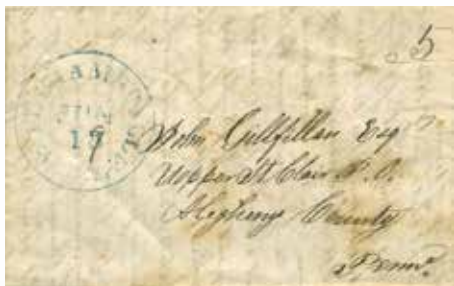 5
JUN
19
John Gillfillan Esq
Upper St Clair P.O.
Alegheny County
Penna.